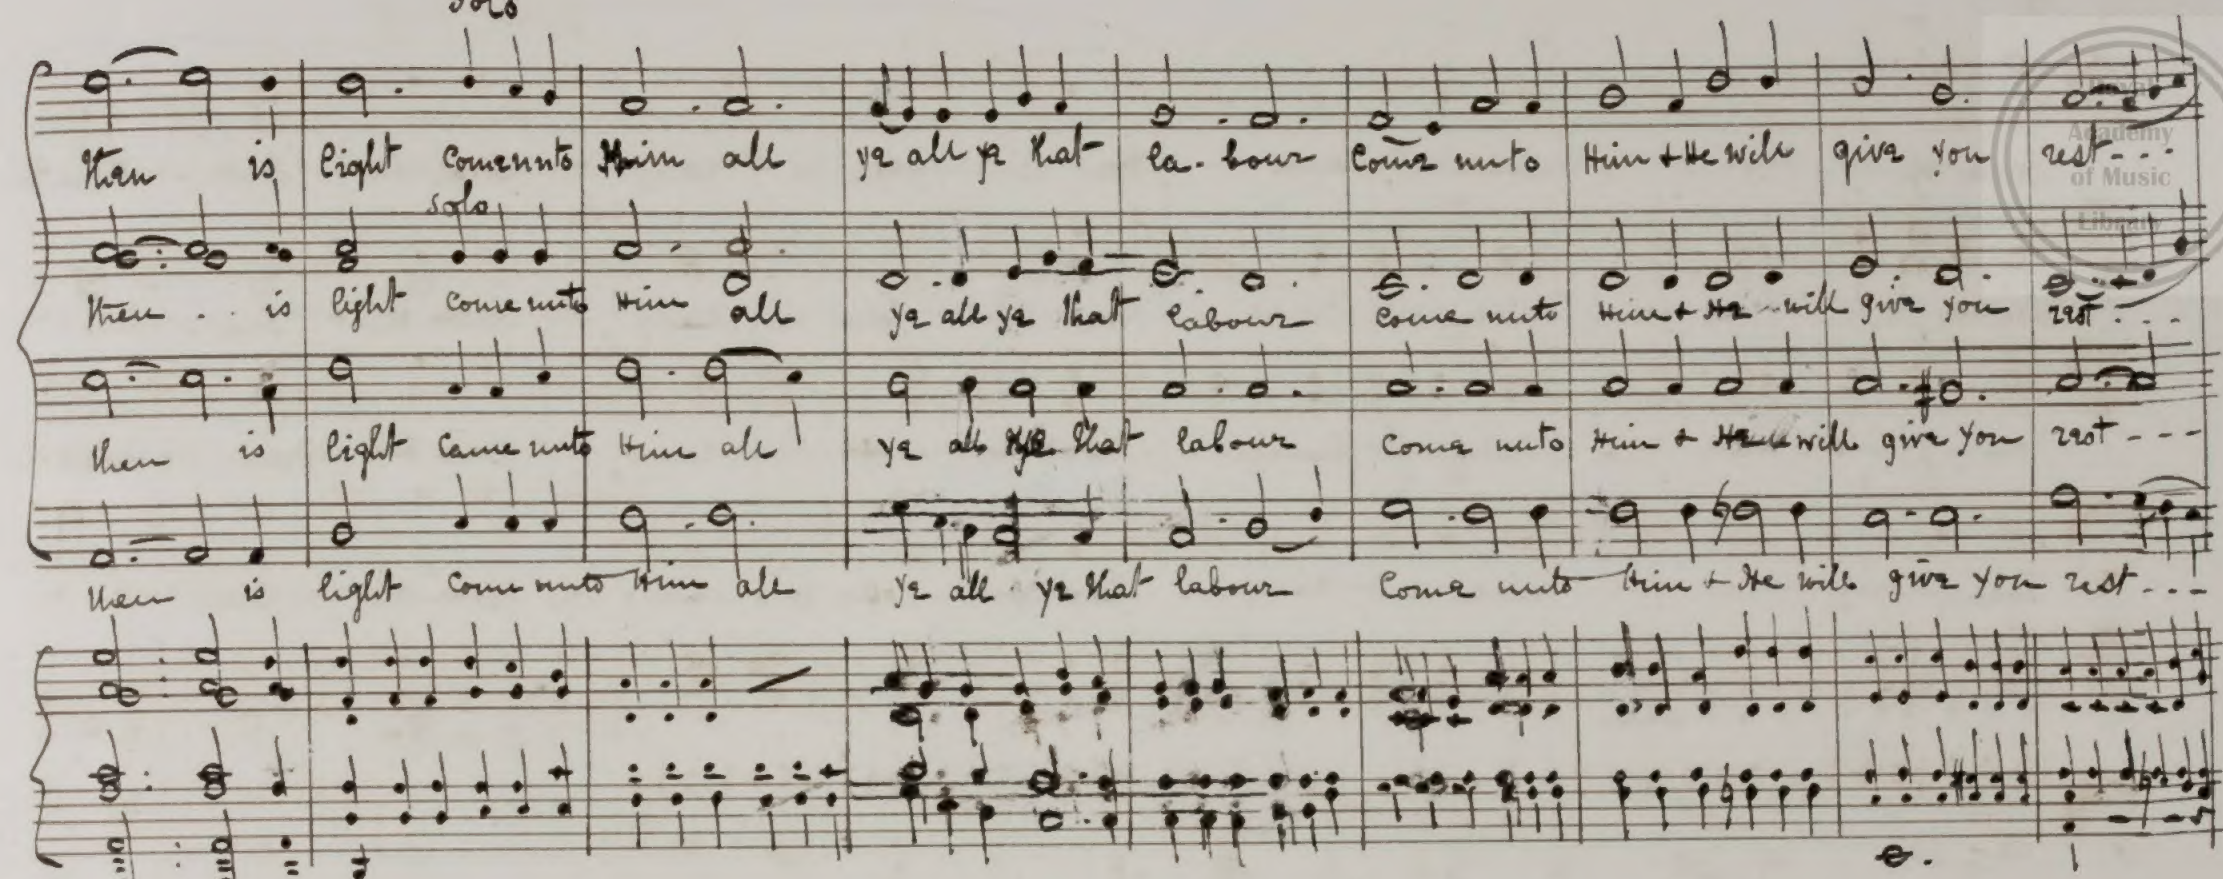 Solo
then is light Come unto Him all ye all ye that la-bour Come unto Him + He will give you rest - - -
solo
then . . is light come unto Him all ye all ye that labour Come unto Him + He will give you rest - - -
then is light Come unto Him all ye all ye that labour Come unto Him + He will give you rest - - -
then is light Come unto Him all ye all ye that labour Come unto Him + He will give you rest - - -
Academy
of Music
Library